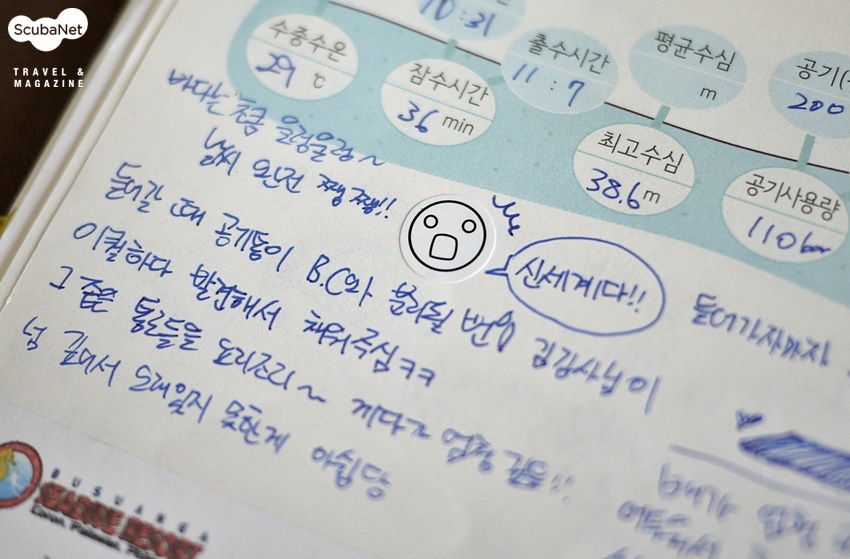 ScubaNet
TRAVEL &
MAGAZINE
10:31
수중수온
29 ℃
잠수시간
36 min
출수시간
11 : 7
평균수심
m
최고수심
38.6 m
공기(
200
공기사용량
110 bar
바다는 조금 울렁울렁~
날씨 완전 쨍쨍!!
신세계다!!
들어갈 때 공기통이 B.C와 분리될 뻔 김강사님이
이퀄하다 발견해서 채워주심ㅋㅋ
그 좁은 통로들을 요리조리~ 게다가 엄청 길들!!
넘 깊어서 오래있지 못한게 아쉽당
들어가자마자
배가 엄청
BUSUANGA
SEADIVE RESORT